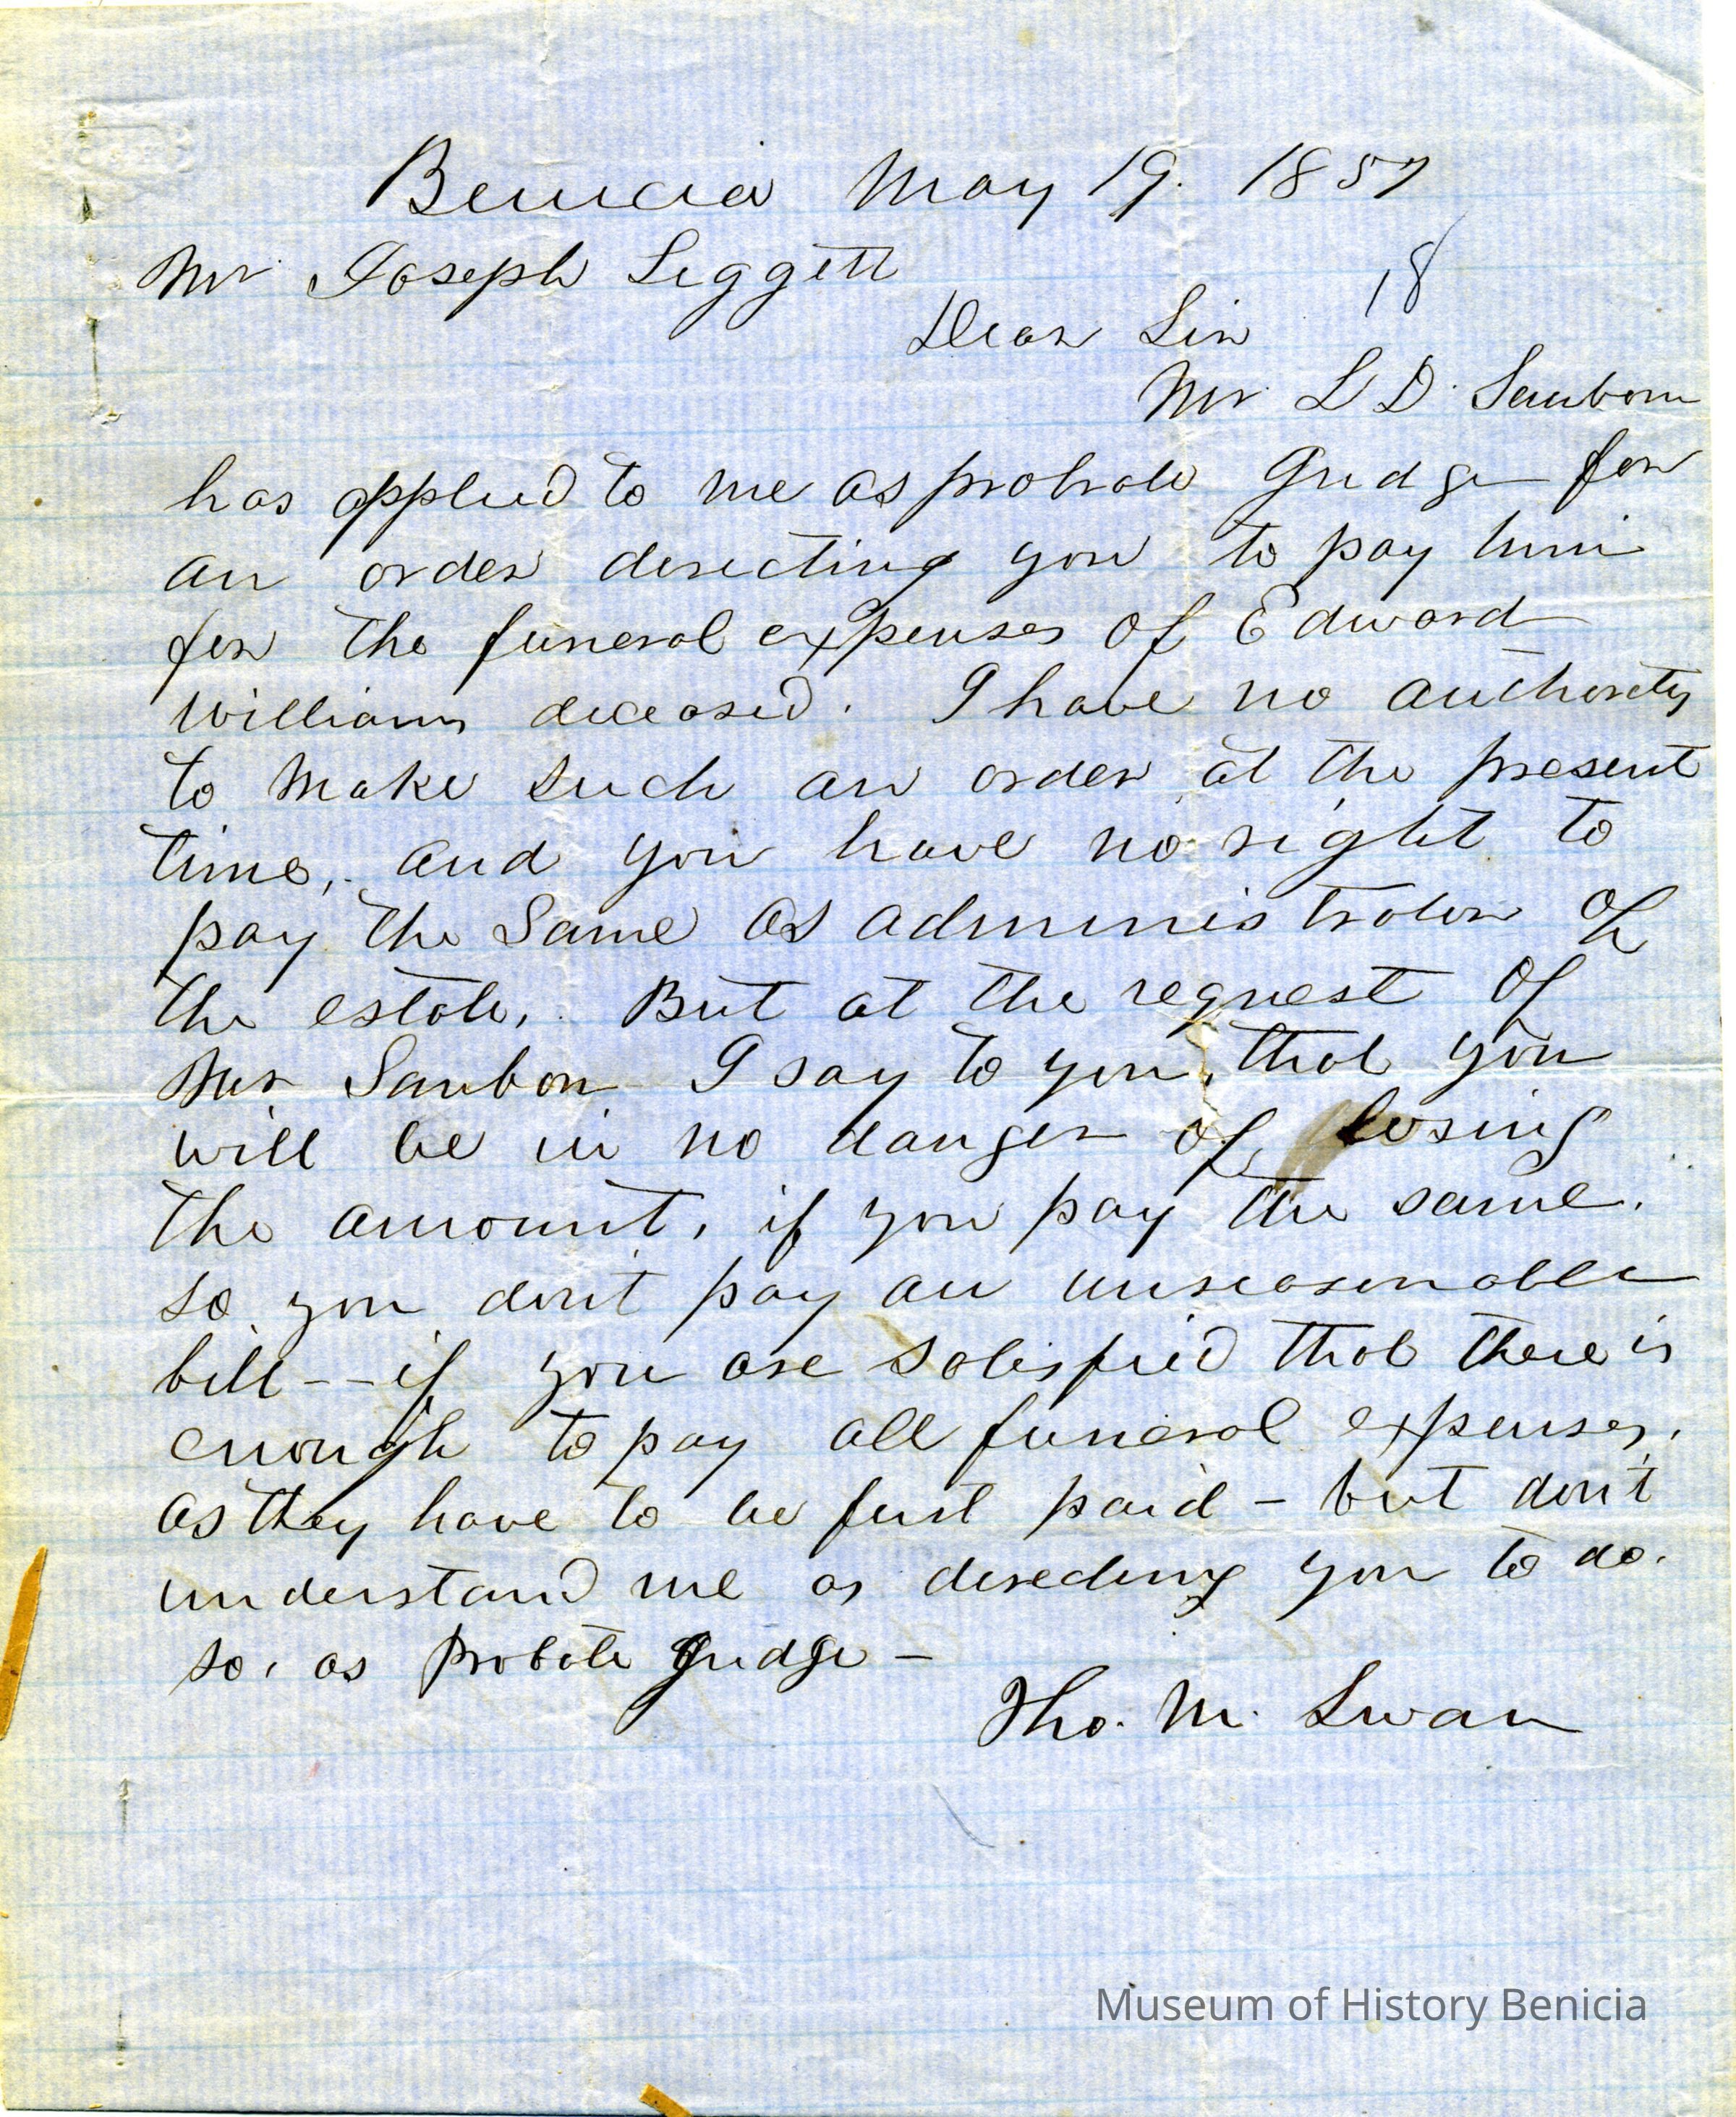 Benicia May 19. 1857
Mr Joseph Leggett
18
Dear Sir
Mr. L D. Sanborn
has applied to me as probate Judge for
an order directing you to pay him
for the funeral expenses of Edward
Williams deceased. I have no authority
to make such an order at the present
time, and you have no right to
pay the same as administrator of
the estate. But at the request of
Mr Sanborn I say to you, that you
will be in no danger of losing
the amount, if you pay the same.
so you dont pay an unreasonable
bill -- if you are satisfied that there is
enough to pay all funeral expenses,
as they have to be first paid - but don't
understand me as directing you to do.
so, as Probate Judge -
Tho. M. Swan
Museum of History Benicia